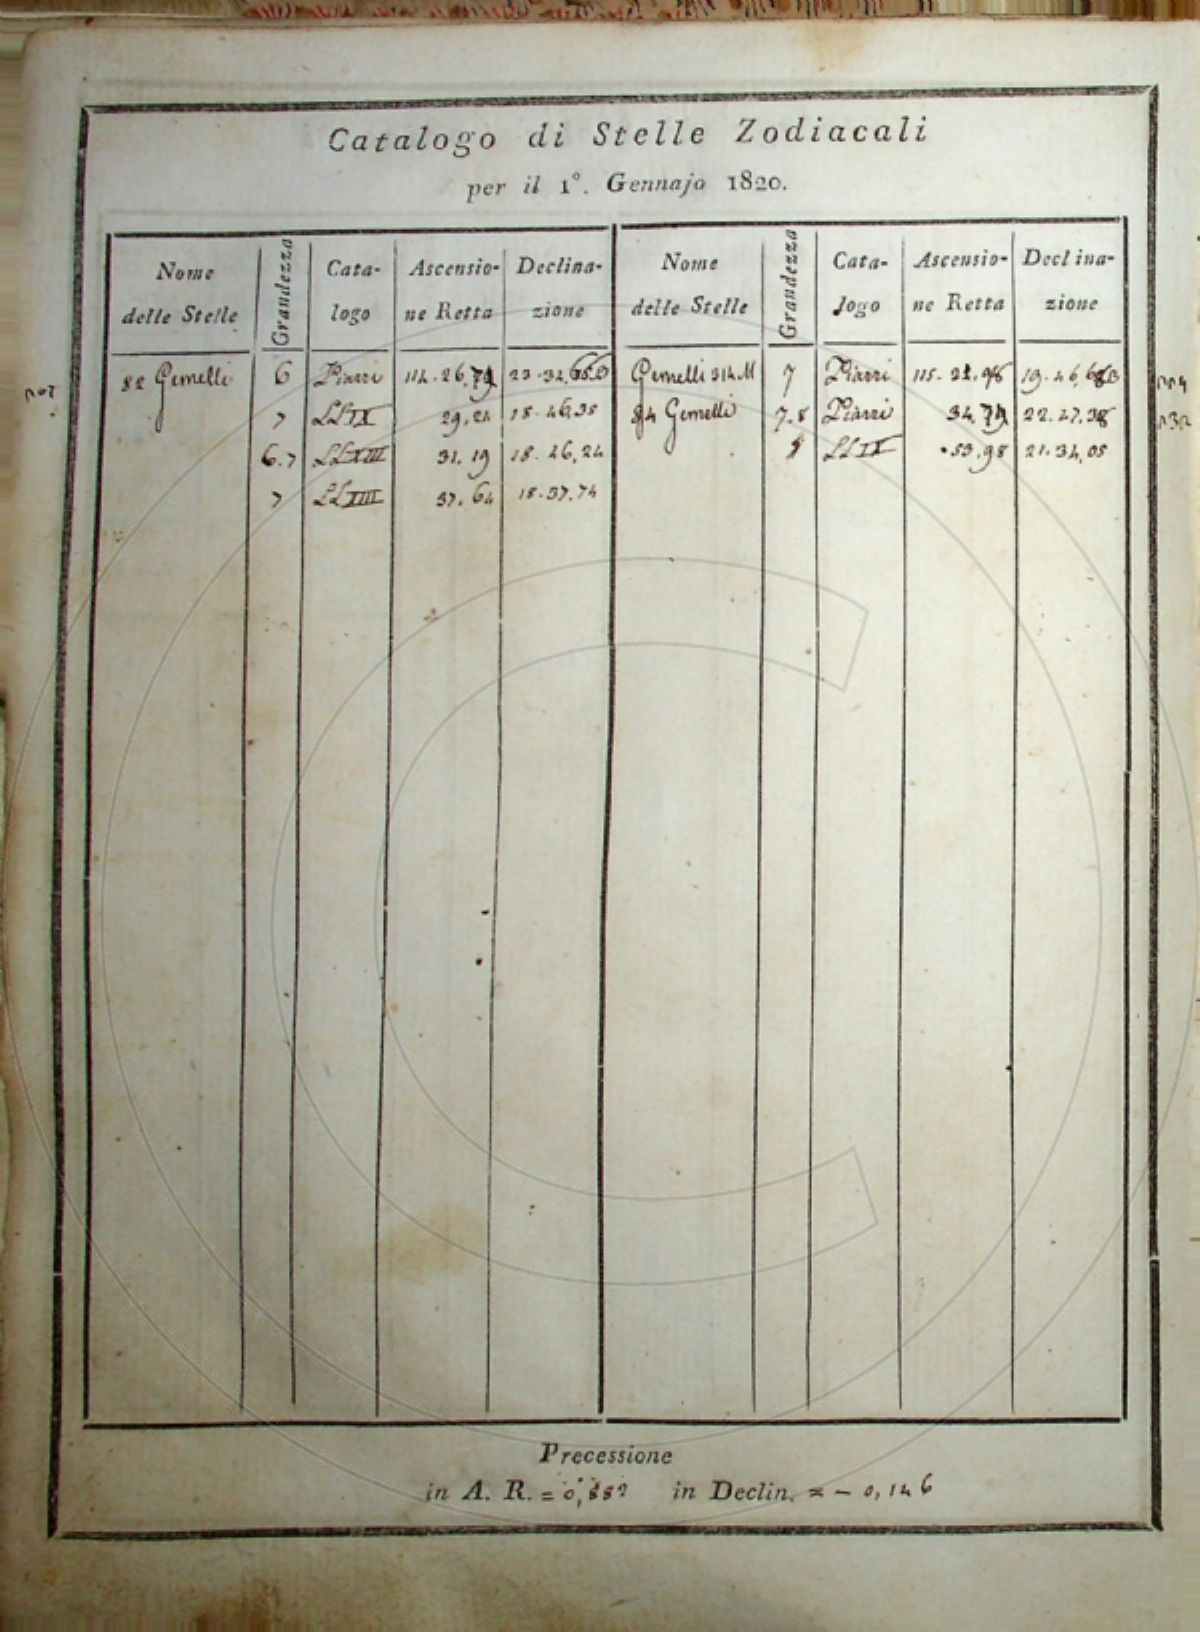 Catalogo di Stelle Zodiacali
per il 1°. Gennajo 1820.
Nome delle Stelle Grandezza Catalogo Ascensione Retta Declinazione Nome delle Stelle Grandezza Catalogo Ascensione Retta Declinazione
82 Gemelli 6 Piazzi 114. 26, 23. 32, Gemelli 314. M 7 Piazzi 115. 19. 46,
7 LL IX 29, 24 18. 46, 38 84 Gemelli 7.8 Piazzi 34, 22. 47,
6.7 LL XIII 31, 19 18. 46, 24 8 LL IX 53, 98 21. 34, 05
7 LL XIII 37, 64 18. 37, 74
Precessione
in A. R. = 0, in Declin. = - 0, 146